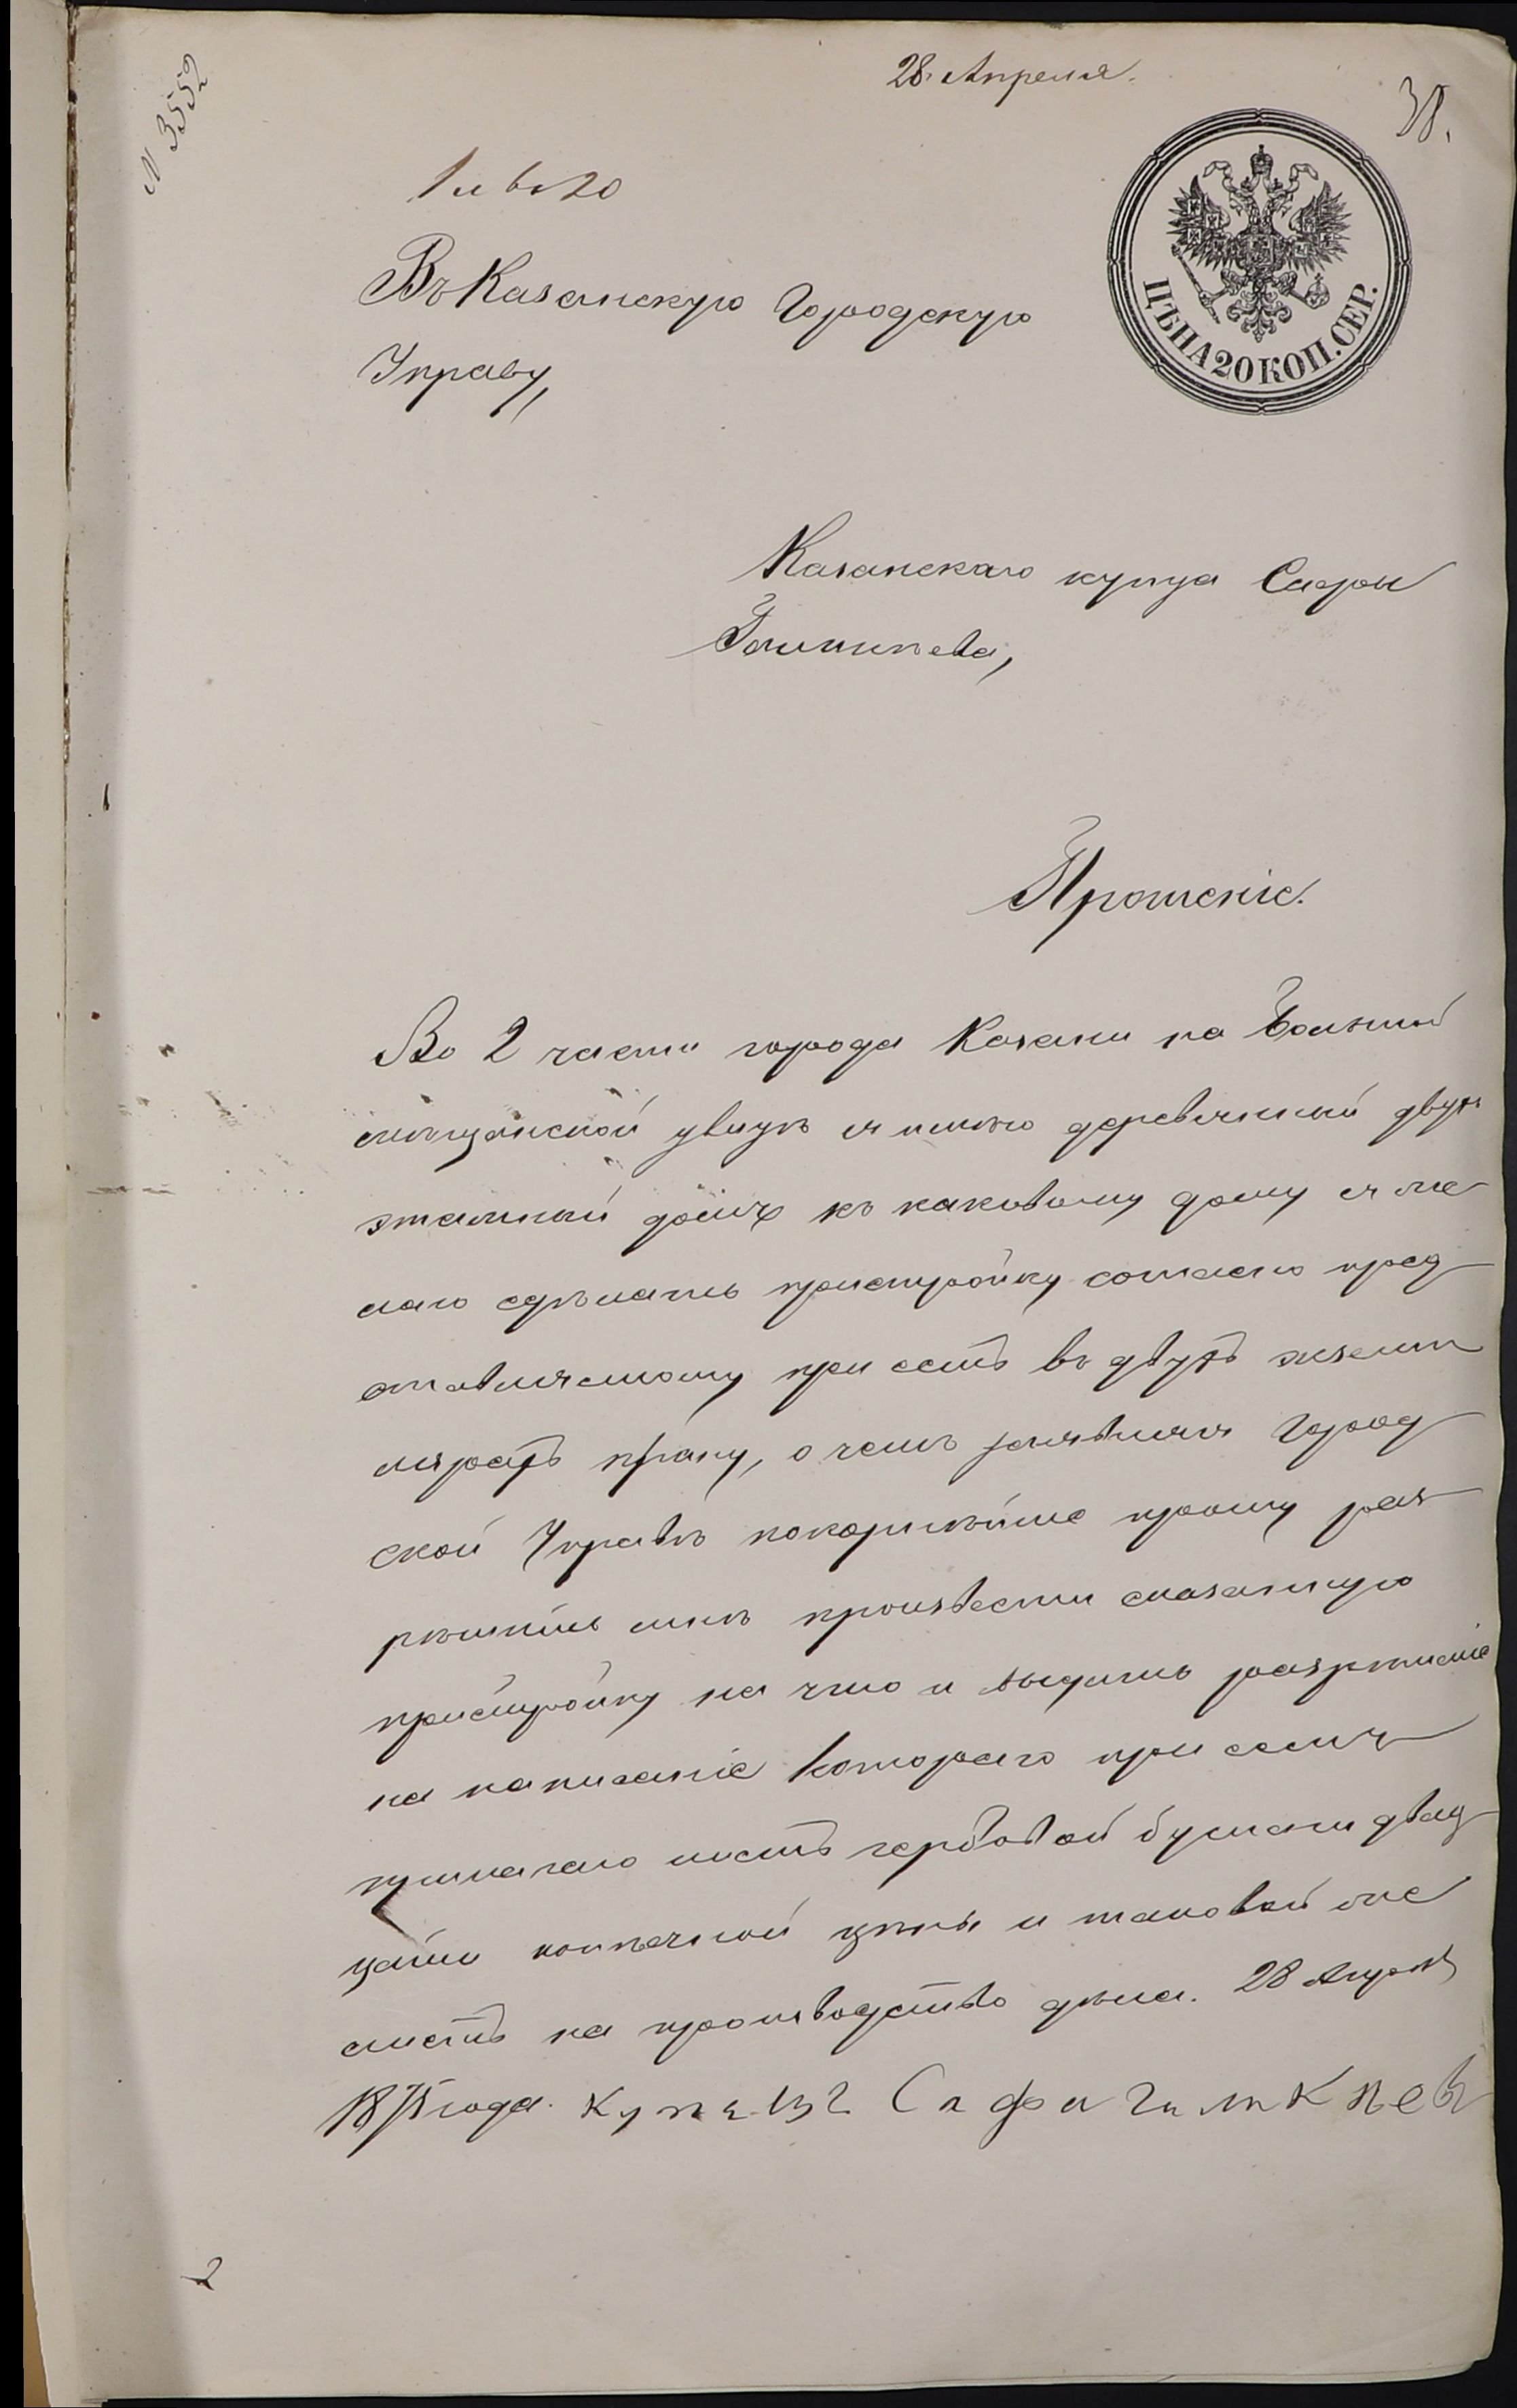 28 Апреля.
38.
N 3552
1 и въ 20
ЦѢНА 20 КОП. СЕР.
Въ Казанскую Городскую
Управу,
Казанскаго купца Сафы
Галикѣева,
Прошеніе.
Во 2 части города Казани на Большой
мѣщанской улицѣ я имѣю деревянный двухъ
этажный домъ къ каковому дому я же
лаю сдѣлать пристройку согласно пред
ставляемому при семъ въ двухъ экземп
лярахъ плану, о чемъ заявляя Город
ской Управѣ покорнѣйше прошу раз
рѣшить мнѣ произвести сказанную
пристройку на что и выдать разрѣшеніе
на написаніе котораго при семъ
прилагаю листъ гербовой бумаги двад
цати копѣечной цѣны и таковой же
листъ на производство дѣла. 28 Апрѣля
1875 года. Купецъ Сафа Галикѣевъ
2